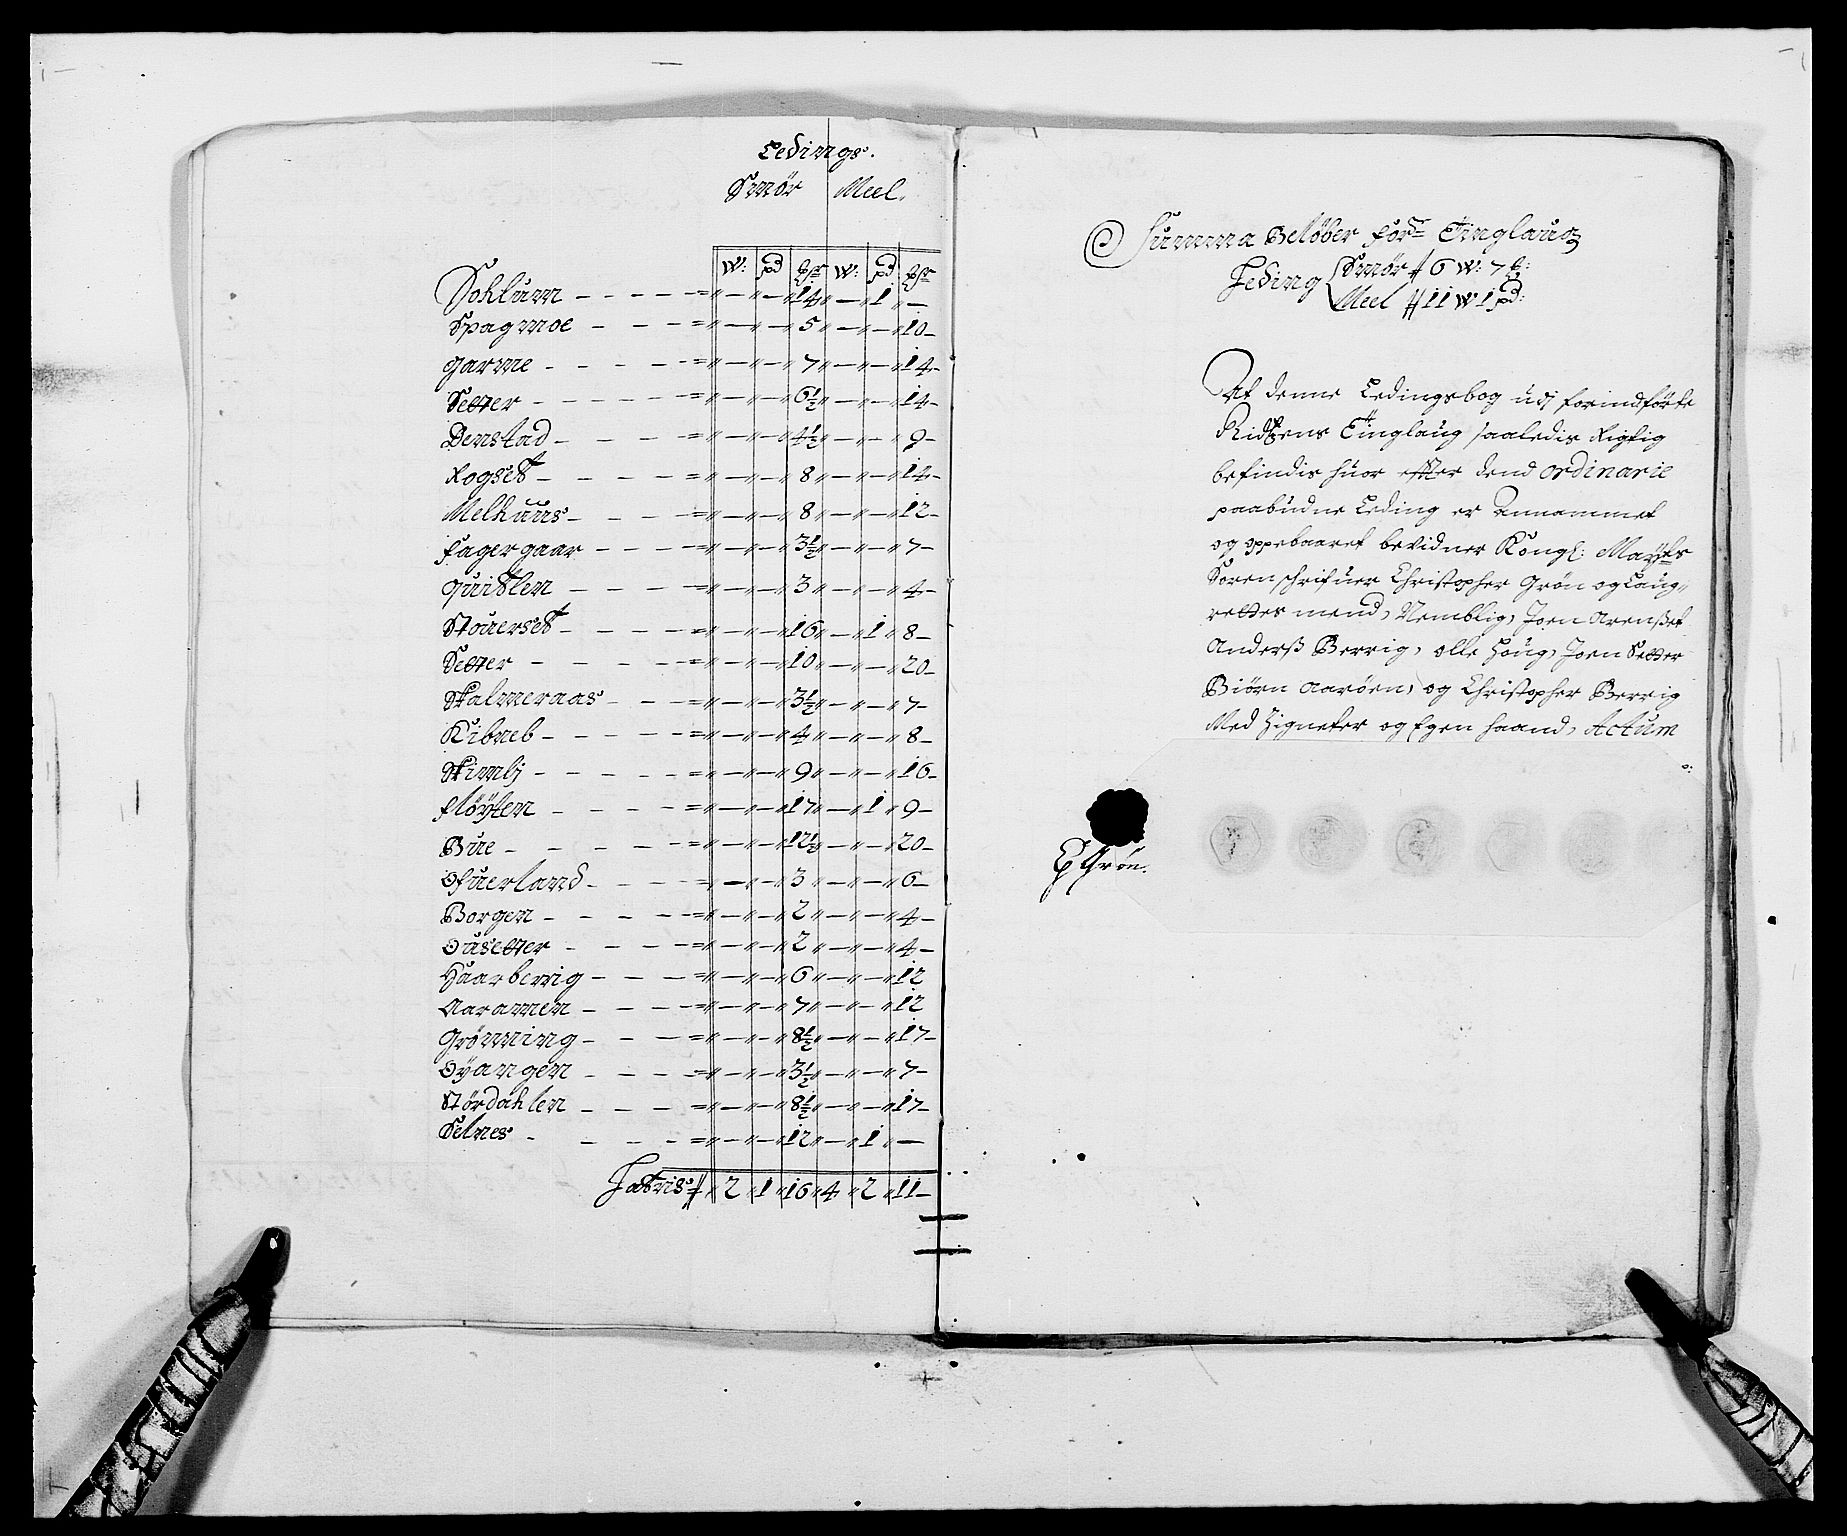 Ledings.
Smör Meel.
W: pd W: pd
Sohlum - - - - - = „ — „ — „ 14 „ — „ 1 „ —
Spagmoe - - - = „ — „ — „ 5 „ — „ — „ 10 -
Garme - - - - = „ — „ — „ 7 „ — „ — „ 14 -
Setter - - - - - = „ — „ — „ 6½ „ — „ — „ 14 -
Denstad - - - - = „ — „ — „ 4½ „ — „ — „ 9 -
Rogset - - - - = „ — „ — „ 8 „ — „ — „ 14 -
Melhuus - - - - = „ — „ — „ 8 „ — „ — „ 12 -
Fagergaar - - - = „ — „ — „ 3½ „ — „ — „ 7 -
Quitlen - - - = „ — „ — „ 3 „ — „ — „ 4 -
Stouerset - - - - = „ — „ — „ 16 „ — „ 1 „ 8 -
Setter - - - - = „ — „ — „ 10 „ — „ — „ 20 -
Skalmeraas - - - = „ — „ — „ 3½ „ — „ — „ 7 -
Kibneb - - - - - = „ — „ — „ 4 „ — „ — „ 8 -
Skimli - - - - - = „ — „ — „ 9 „ — „ — „ 16 -
Flöyten - - - - = „ — „ — „ 17 „ — „ 1 „ 9 -
Bue - - - - - = „ — „ — „ 12½ „ — „ — „ 20 -
Ofuerland - - - = „ — „ — „ 3 „ — „ — „ 6 -
Borgen - - - - = „ — „ — „ 2 „ — „ — „ 4 -
Ousetter - - - = „ — „ — „ 2 „ — „ — „ 4 -
Haarberrig - - - = „ — „ — „ 6 „ — „ — „ 12
Aaramen - - - = „ — „ — „ 7 „ — „ — „ 12
Grönning - - - = „ — „ — „ 8½ „ — „ — „ 17 -
Oÿangen - - - = „ — „ — „ 3½ „ — „ — „ 7 -
Stördahlen - - - = „ — „ — „ 8½ „ — „ — „ 17 -
Selnes - - - - = „ — „ — „ 12 „ — „ 1 „ —
Latris „ 2 „ 1 „ 16 „ 4 „ 2 „ 11 -
Summa Belöber forne Tinglaug
Leding Smör 6 W: 7
Meel 11 W 1 pd:
Af denne Ledingsbog udj forindförte
Tinglaug saaledis Rigtig
befindis huor effter dend ordinarie
paabudne Leding er Annammet
og oppebaaret bevidner Kongl: Mayts
Sorenschrifuer Christopher Grön og Laug-
rettes mend, Nemblig, Joen Arenset
Anderß Berrig, olle Houg, Joen Setter
Biörn Aaröen, og Christopher Berrig
Med Zigneter og Egen haand, Actum
Grön.